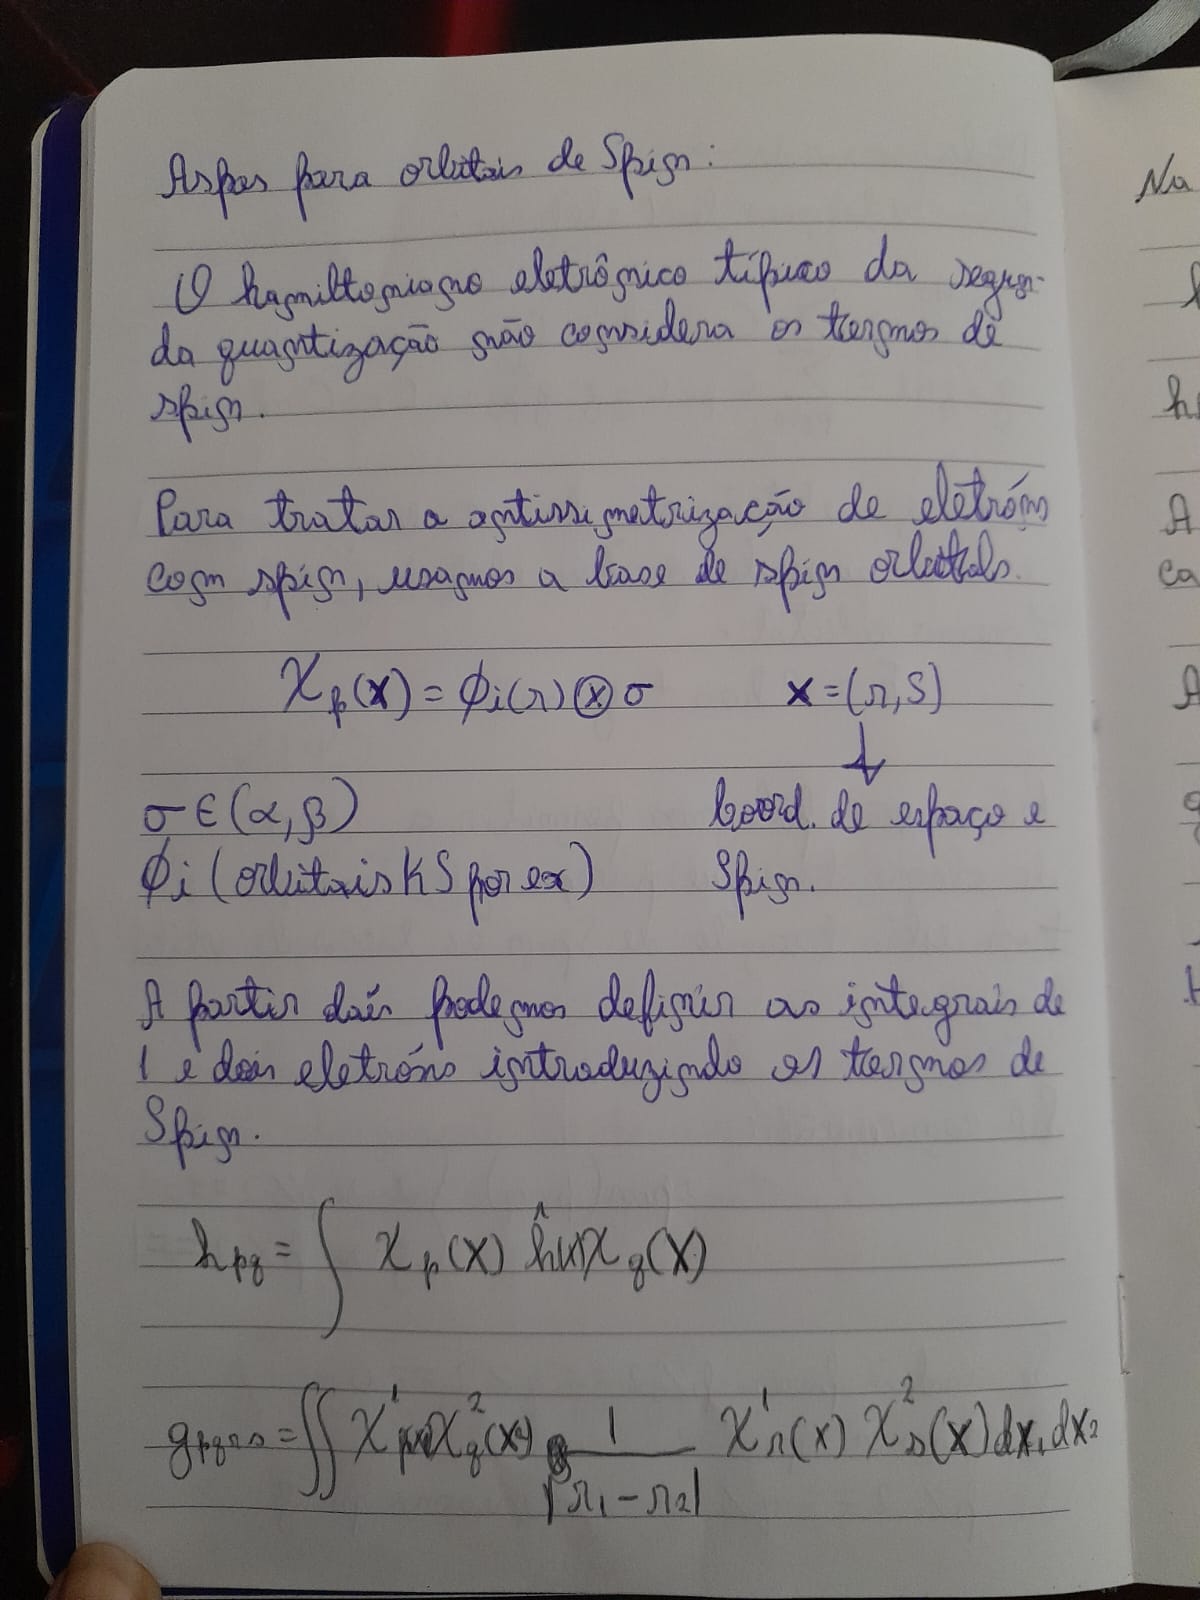 Aspas para orbitais de Spin:
O hamiltoniano eletrônico típico da segun-
da quantização não considera os termos de
spin.
Para tratar a antissimetrização de eletróns
com spin, usamos a base de spin orbitals.
χp(x) = ϕi(r) ⊗ σ x = (r, S)
↓
σ ∈ (α, β) Coord. de espaço e
ϕi (orbitais KS por ex) Spin.
A partir daís podemos definir as integrais de
1 e dois eletróns introduzindo os termos de
Spin.
hpq = ∫ χp(x) ĥ(x) χq(x)
gpqrs = ∬ χ¹p(x) χ²q(x) 1/|r1 - r2| χ¹r(x) χ²s(x) dx1 dx2
Na
h
A
ca
A